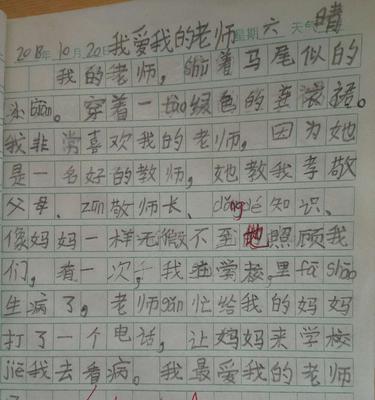 2018年10月20日我爱我的老师星期六 天气晴
我的老师，shū着马尾似的
小biàn。穿着一tào绿色的连衣裙。
我非常喜欢我的老师，因为她
是一名好的教师，她教我孝敬
父母、zūn敬师长、dǒng知识、
像妈妈一样无微不至地照顾我
们，有一次，我在学校里fā shāo
生病了，老师gǎn忙给我的妈妈
打了一个电话，让妈妈来学校
jiē我去看病。我最爱我的老师